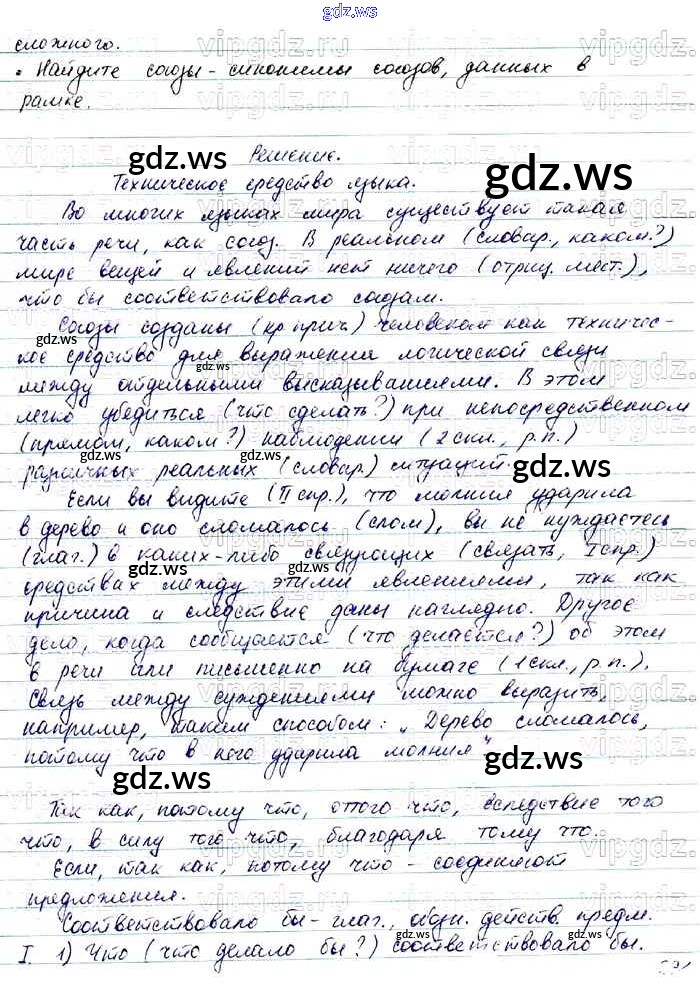 gdz.ws
сложного.
• Найдите союзы - синонимы союзов, данных в
рамке.
Решение.
gdz.ws gdz.ws
Техническое средство языка.
Во многих языках мира существует такая
часть речи, как союз. В реальном (словар., каком?)
мире вещей и явлений нет ничего (отриц. мест.),
что бы соответствовало союзам.
gdz.ws gdz.ws
Союзы созданы (кр прич.) человеком как техничес-
кое средство для выражения логической связи
между отдельными высказываниями. В этом
легко убедиться (что сделать?) при непосредственном
(прямом, каком?) наблюдении (2 скл., р.п.)
различных реальных (словар.) ситуаций.
gdz.ws gdz.ws
Если вы видите (II спр.), что молния ударила
в дерево и оно сломалось (слом), вы не нуждаетесь
(глаг.) в каких-либо связующих (связать, I спр.)
средствах между этими явлениями, так как
gdz.ws gdz.ws
причина и следствие даны наглядно. Другое
дело, когда сообщается (что делается?) об этом
в речи или письменно на бумаге (1 скл., р.п.).
Связь между суждениями можно выразить,
например, таким способом: „Дерево сломалось,
потому что в него ударила молния"
gdz.ws gdz.ws
Так как, потому что, оттого что, вследствие того
что, в силу того что, благодаря тому что.
Если, так как, потому что - соединяют
предложения.
Соответствовало бы - глаг., обозн. действ. предм.
I. 1) Что (что делало бы?) соответствовало бы.
vipgdz.ru